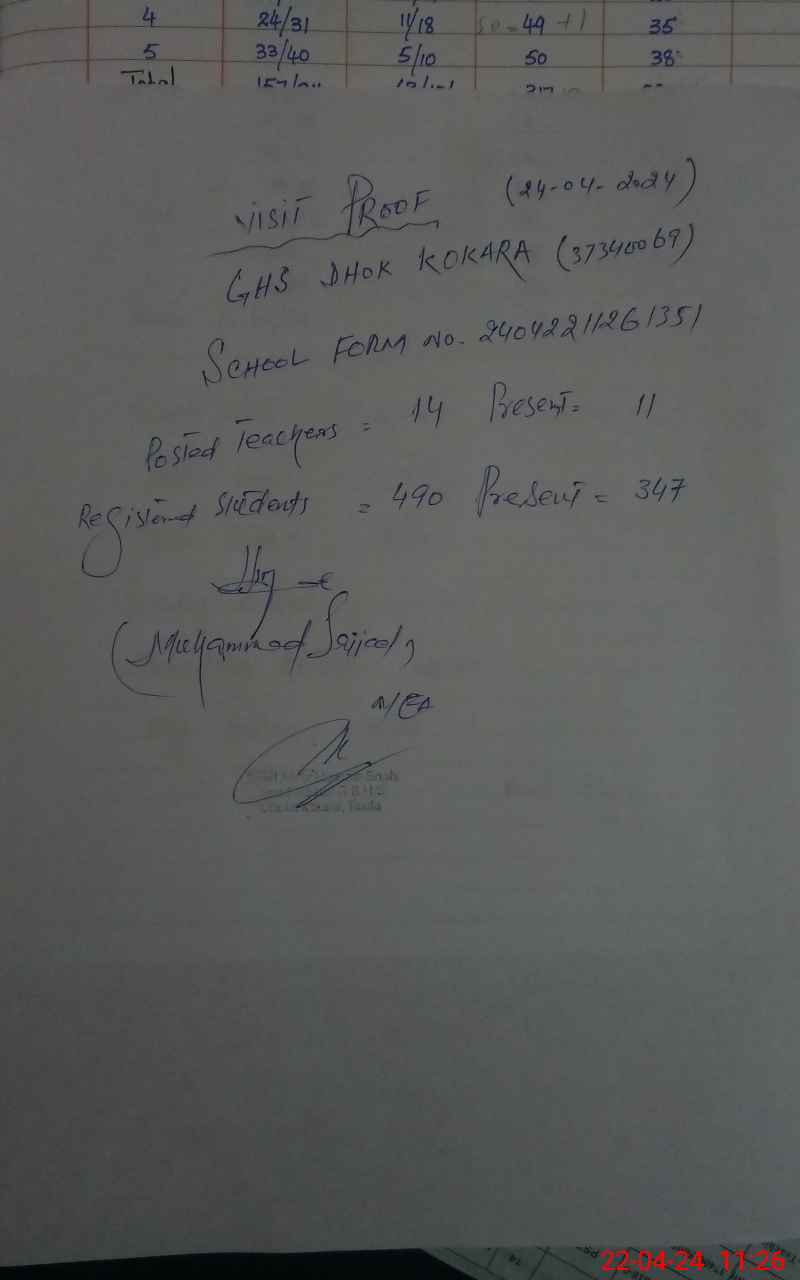 4 24/31 11/18 49 +1 35
5 33/40 5/10 50 38
Total
VISIT PROOF (24-04-2024)
GHS DHOK KOKARA (37340069)
SCHOOL FORM No. 24042211261351
Posted Teachers = 14 Present = 11
Registered Students = 490 Present = 347
(Muhammad Sajjad)
MEA
22-04-24 11:26